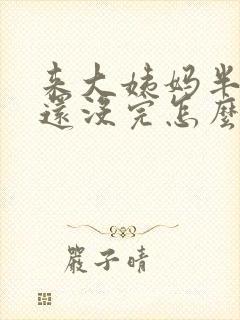 来大姨妈半
還沒完怎麼
嚴子晴